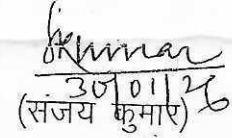 SKumar
30/01/26
(संजय कुमार)